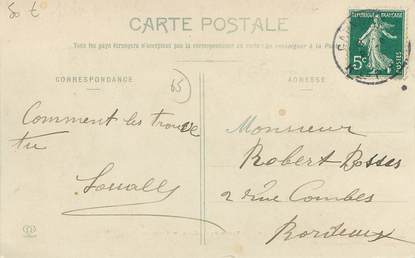 50 €
CARTE POSTALE
Tous les pays étrangers n'acceptent pas la correspondance au recto. (Se renseigner à la Poste)
RÉPUBLIQUE FRANÇAISE
5c
POSTES
CORRESPONDANCE
65
ADRESSE
Comment les trouve
tu
Monsieur
Robert Bosses
2 rue Combes
Bordeaux